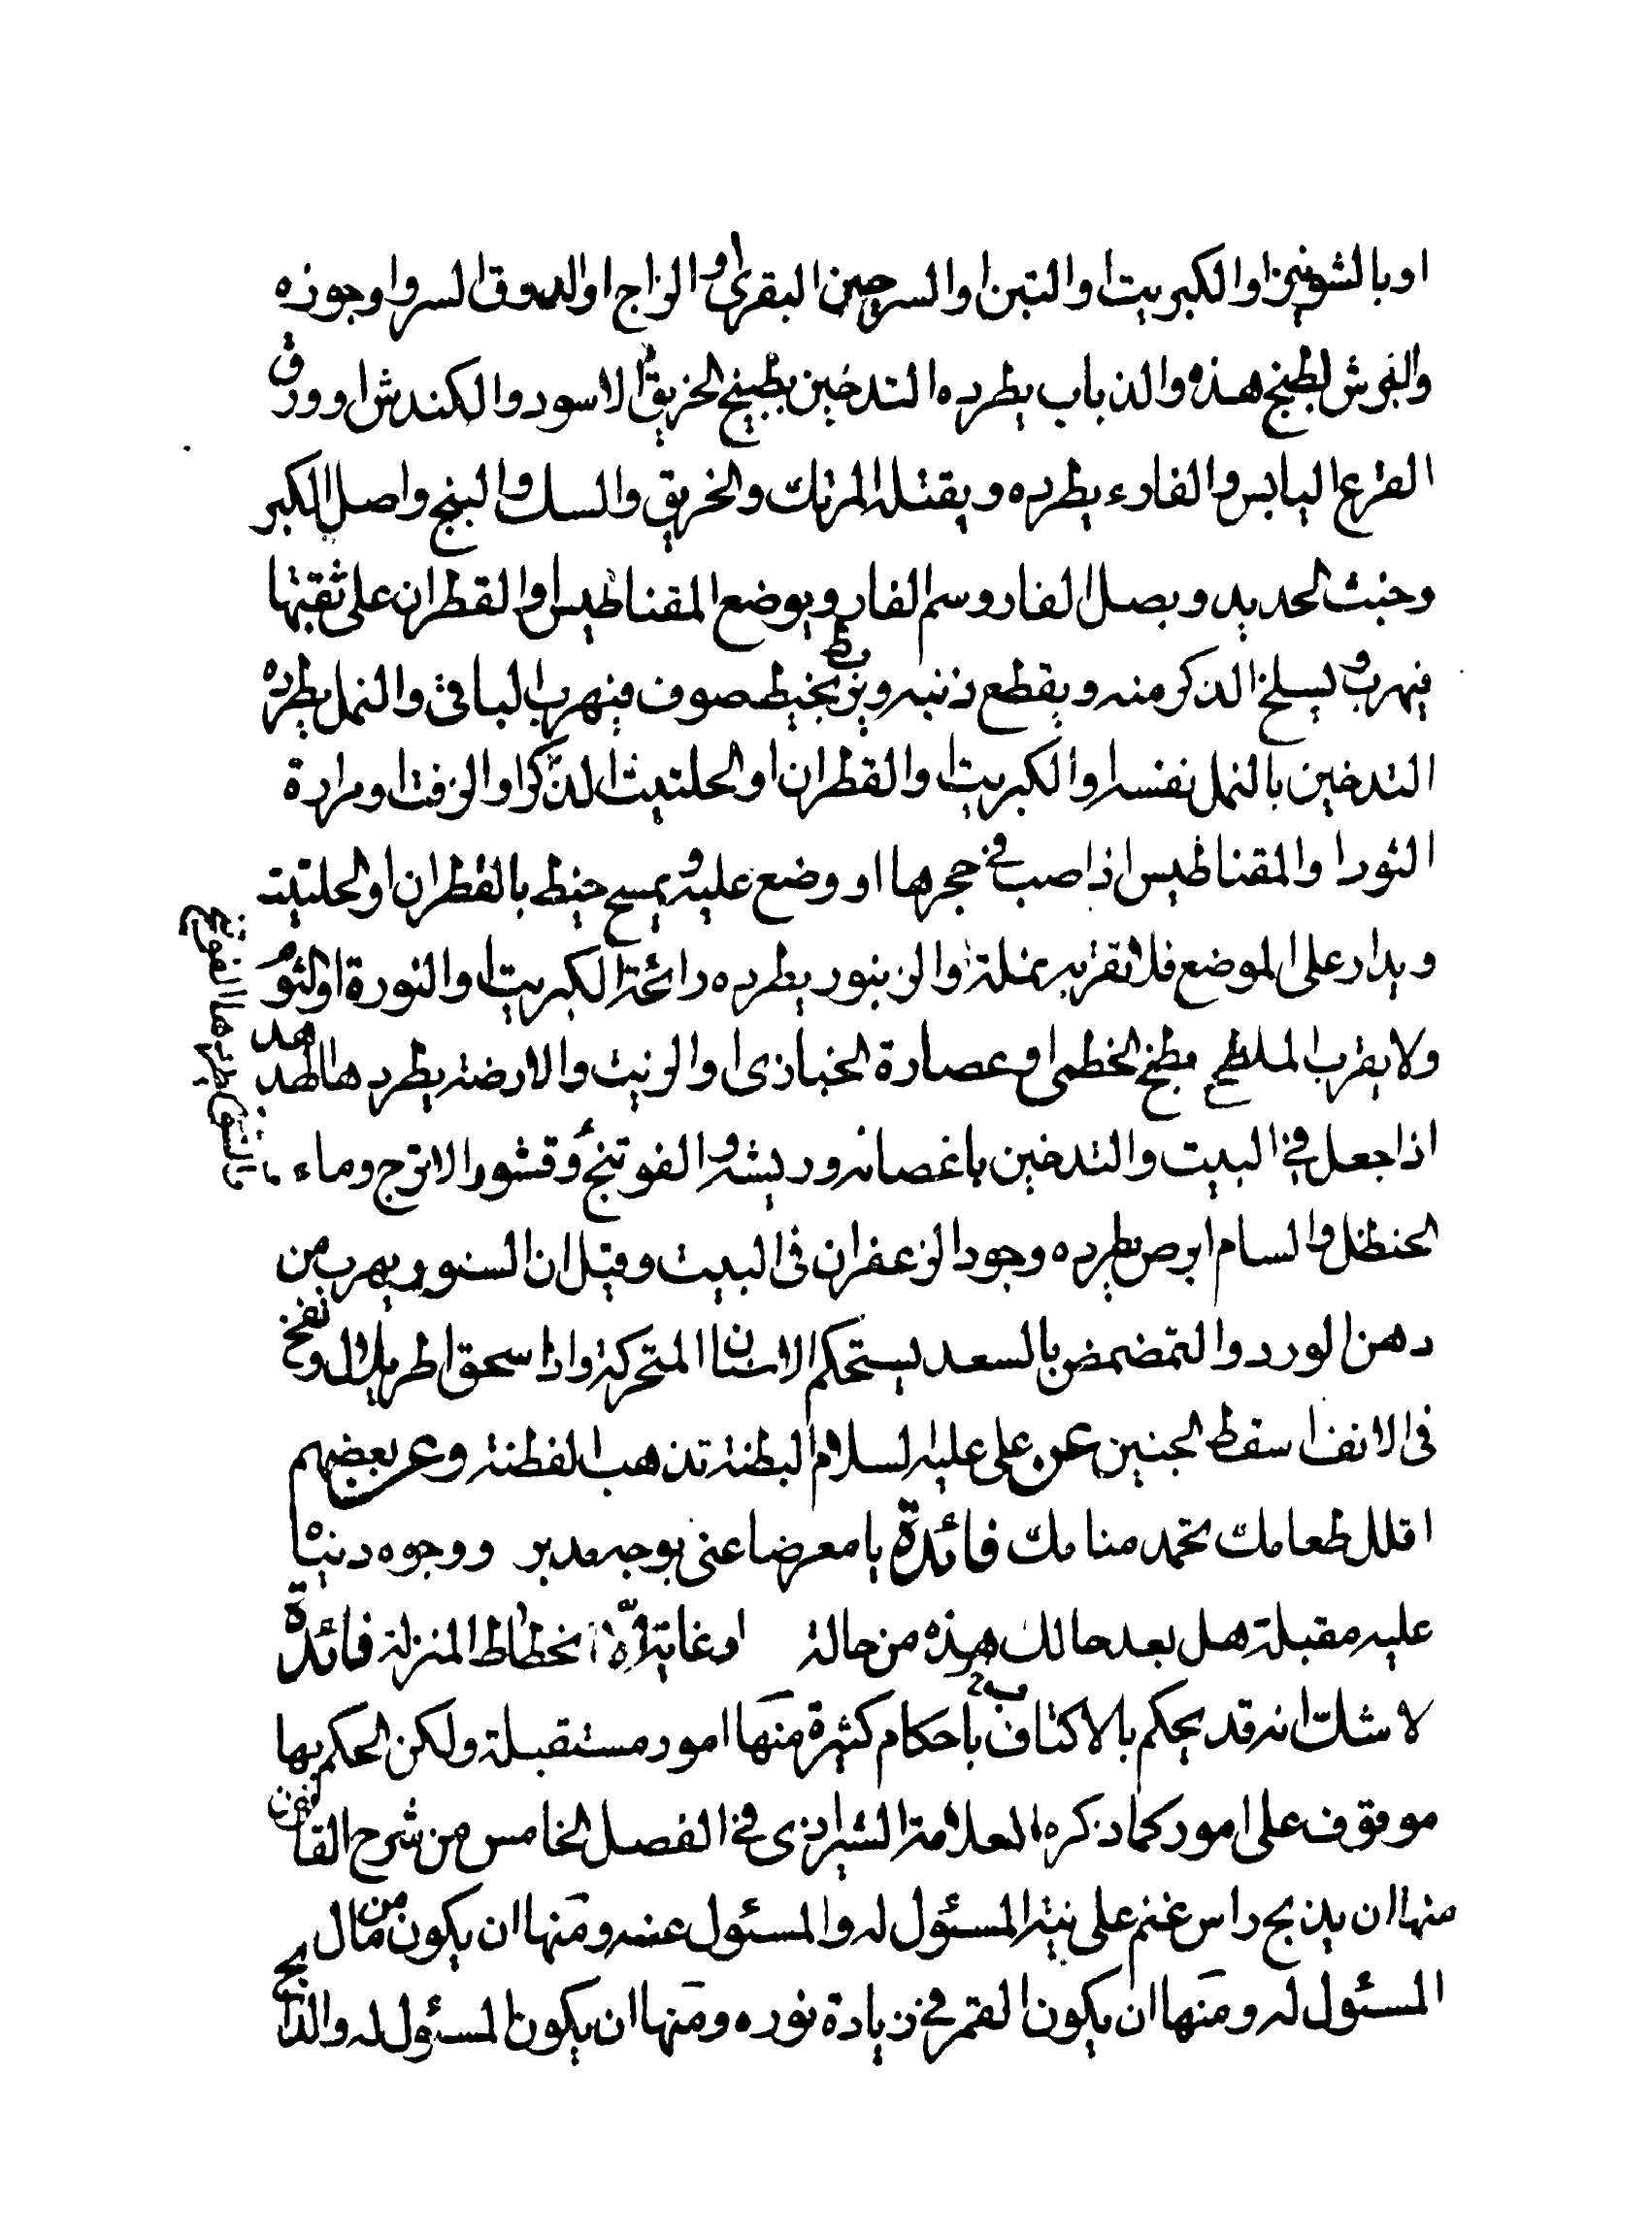 او بالشونيز او الكبريت او التبن او السرجين البقرى او الزاج او ورق السرو او جوزه
والفرش لطبخ هذه والذباب يطرده التدخين بطبيخ الخربق الاسود والكندش او ورق
القرع اليابس والفارء يطرده ويقتله المرتك والخربق والسك والبنج واصل الكبر
وخبث الحديد وبصل الفار وسم الفار ويوضع المقناطيس او القطران على ثقبتها
فيهرب ويسلخ الذكر منه ويقطع ذنبه ويربط بخيط صوف فيهرب الباقى والنمل يطرده
التدخين بالنمل نفسه او الكبريت او القطران او الحلتيث الذكر او الزفت او مرارة
الثور او المقناطيس اذا صب فى حجرها او وضع عليه ويمسح خيط بالقطران او الحلتيت
ويدار على الموضع فلا تقربه نملة والزنبور يطرده رائحة الكبريت او النورة او الثوم
ولا يقرب الملطخ بطبخ الخطمى او عصارة الخبازى او الزيت والارضة يطردها الهدهد
اذا جعل فى البيت والتدخين باغصانه وريشه والفوتنج وقشور الاترج وماء
الحنظل والسام ابرص يطرده وجود الزعفران فى البيت وقيل ان السنور يهرب من
دهن الورد والتمضمض بالسعد يستحكم الاسنان المتحركة واذا سحق اطريلال ونفخ
فى الانف اسقط الجنين عن على عليه السلام البطنة تذهب الفطنة وعن بعضهم
اقلل طعامك تحمد منامك فائدة يا معرضا عنى بوجه مدبر ووجوه دنياه
عليه مقبلة هل بعد حالك هذه من حالة او غاية الا انحطاط المنزلة فائدة
لا شك انه قد يحكم بالاكتاف باحكام كثيرة منها امور مستقبلة ولكن الحكم بها
موقوف على امور كما ذكره العلامة الشيرازى فى الفصل الخامس من شرح القانون
منها ان يذبح راس غنم على نية المسئول له والمسئول عنه ومنها ان يكون من مال
المسئول له ومنها ان يكون القمر فى زيادة نوره ومنها ان يكون المسئول له والذابح